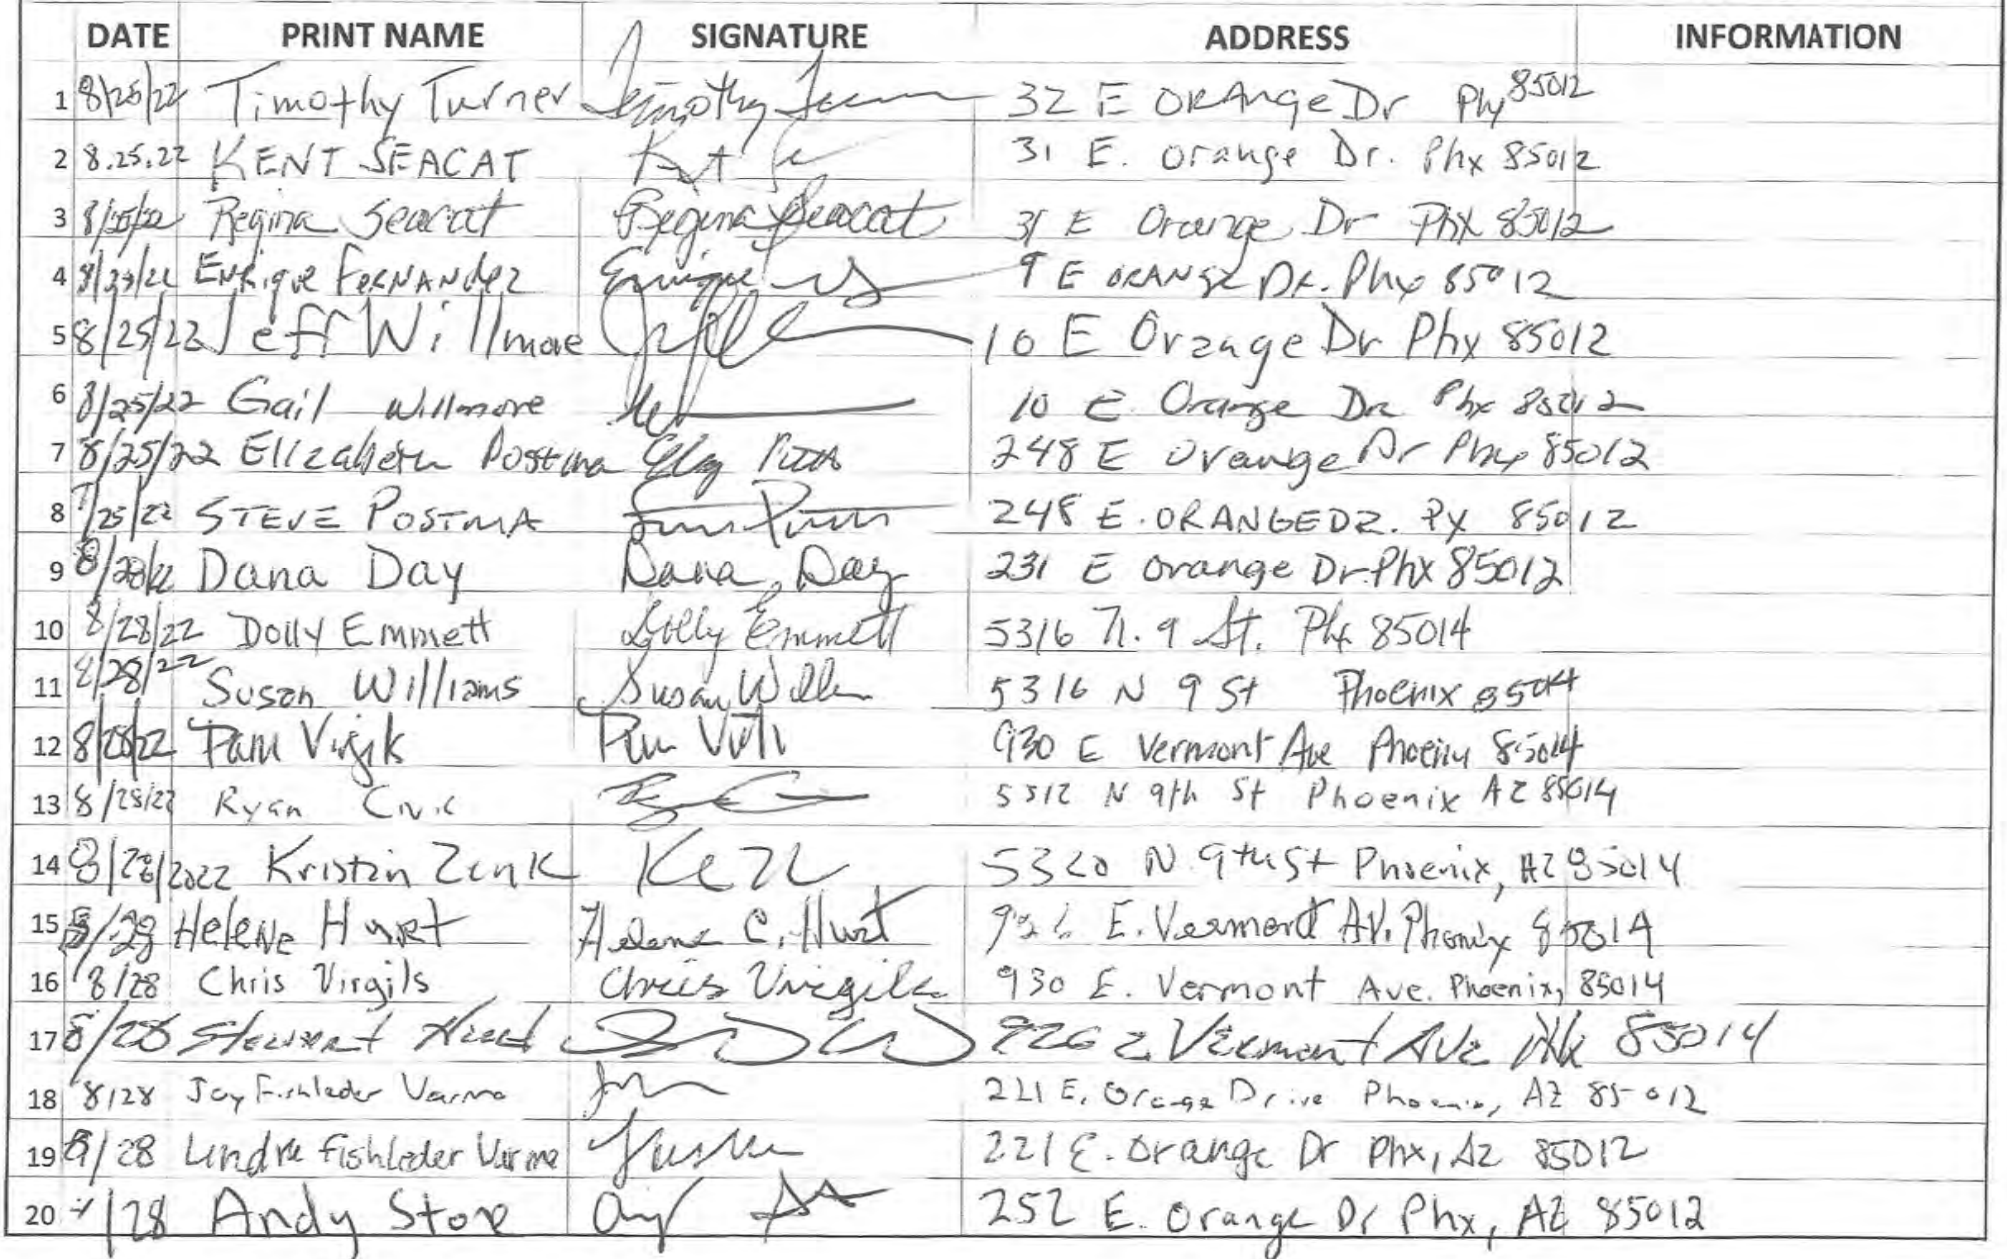 DATE PRINT NAME SIGNATURE ADDRESS INFORMATION
1 8/25/22 Timothy Turner Timothy 32 E ORAnge Dr Phx 85012
2 8.25.22 KENT SEACAT 31 E. Orange Dr. Phx 85012
3 8/25/22 Regina Seacat Regina Seacat 31 E Orange Dr Phx 85012
4 ENRique FeRNANdez Enrique 9 E ORANge DR. Phx 85012
5 8/25/22 Jeff Willmore 10 E Orange Dr Phx 85012
6 8/25/22 Gail Willmore 10 E Orange Dr Phx 85012
7 8/25/22 Elizabeth Postma 248 E Orange Dr Phx 85012
8 /25/22 STEVE POSTMA 248 E. ORANGE DR. PX 85012
9 8/28/22 Dana Day Dana Day 231 E Orange Dr Phx 85012
10 8/28/22 Dolly Emmett Dolly Emmett 5316 N. 9 St. Phx 85014
11 8/28/22 Susan Williams Susan 5316 N 9 St Phoenix 85014
12 8/28/22 Pam 930 E Vermont Ave Phoenix 85014
13 8/28/22 Ryan Civic 5312 N 9th St Phoenix AZ 85014
14 8/28/2022 Kristin Zenk 5320 N. 9th St Phoenix, AZ 85014
15 8/28 HeleNe Hurt Helene C. Hurt E. Vermont AV. Phoenix 85014
16 8/28 Chris Virgils Chris Virgils 930 E. Vermont Ave. Phoenix, 85014
17 8/28 Stewart Hurt 926 E Vermont Ave Phx 85014
18 8/28 Jay Fishleder Varma 221 E. Orange Drive Phoenix, AZ 85012
19 8/28 Fishleder Varma 221 E. Orange Dr Phx, Az 85012
20 /28 Andy Stone 252 E. Orange Dr Phx, AZ 85012